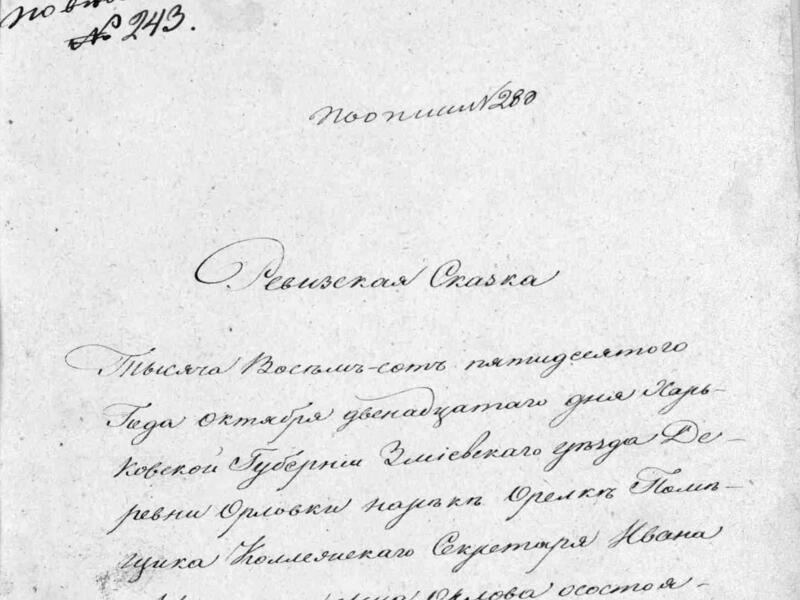 № 243.
по описи N 280
Ревизская Сказка
Тысяча Восемъ-сотъ пятидесятого
Года октября двенадцатаго дня Харь-
ковской Губерніи Зміевскаго уѣзда Де-
ревни Орловки нарѣкѣ Орелкѣ Помѣ-
щика Коллежскаго Секретаря Ивана
Орлова осостоя-